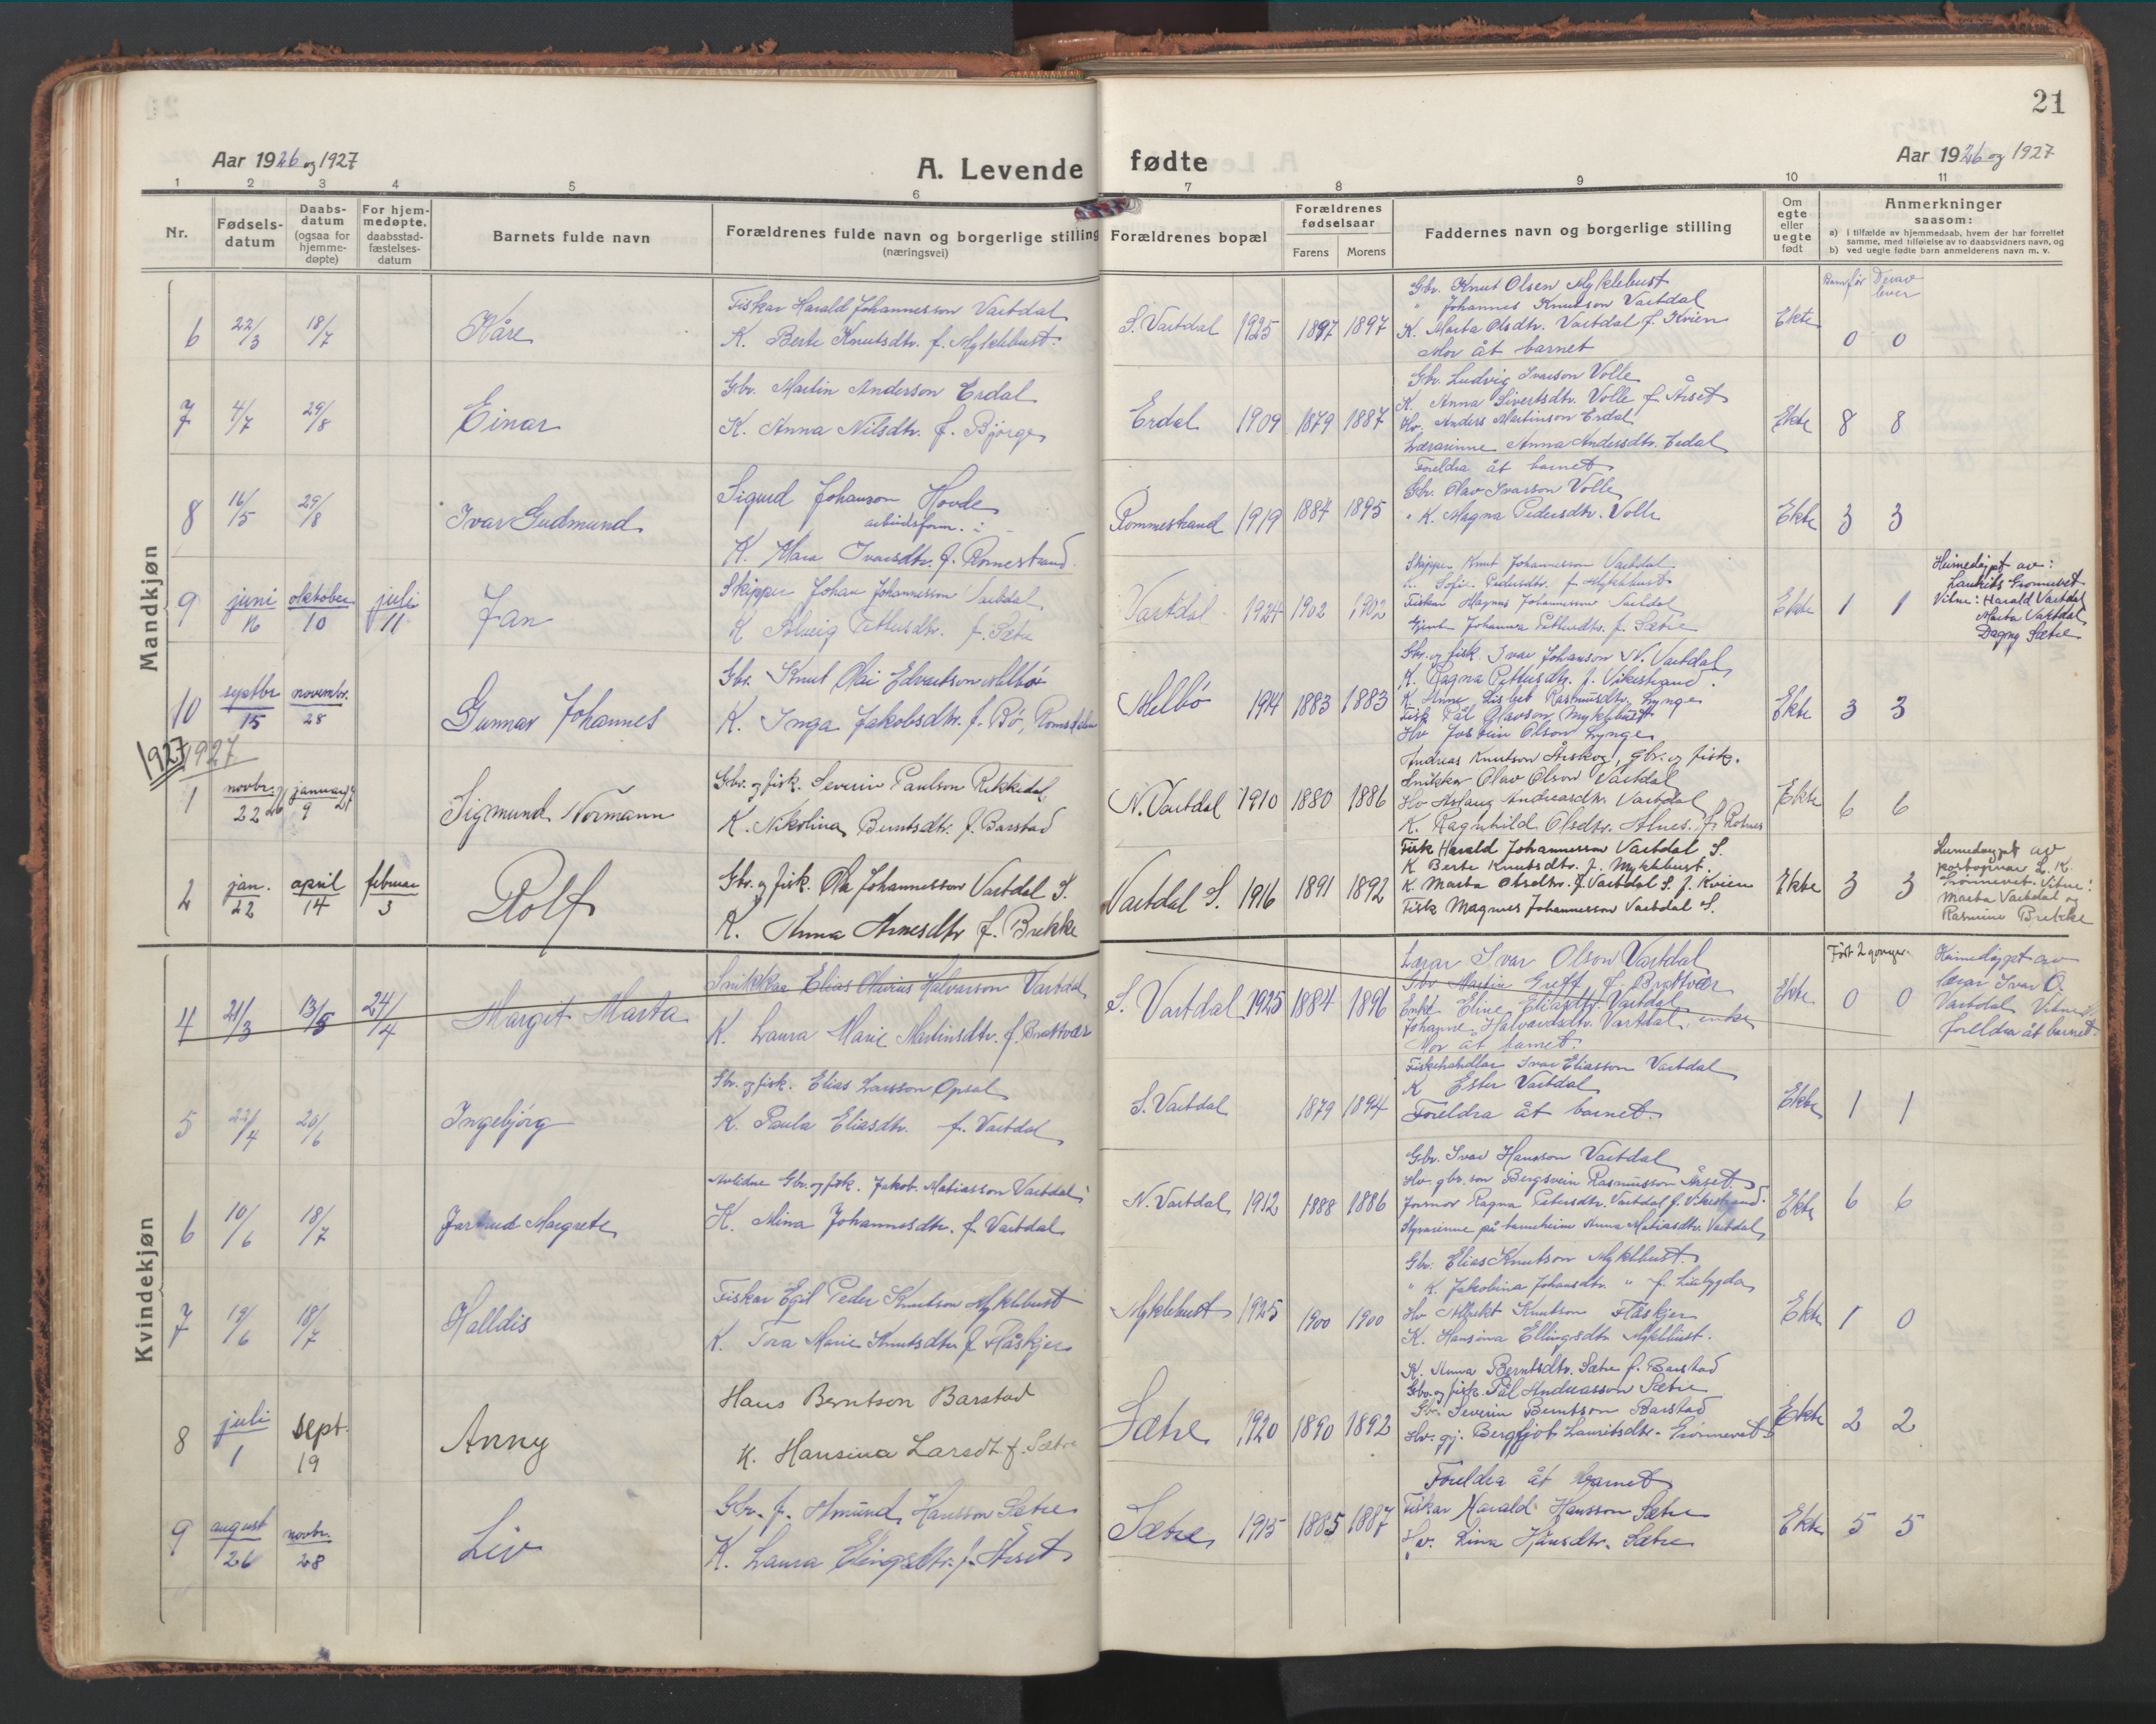 21
Aar 1926 og 1927
A. Levende fødte
Aar 1926 og 1927
1 2 3 4 5 6 7 8 9 10 11
Nr.
Fødsels-
datum
Daabs-
datum
(ogsaa for
hjemme-
døpte)
For hjem-
medøpte,
daabsstad-
fæstelses-
datum
Barnets fulde navn
Forældrenes fulde navn og borgerlige stilling
(næringsvei)
Forældrenes bopæl
Forældrenes
fødselsaar
Farens Morens
Faddernes navn og borgerlige stilling
Om
egte
eller
uegte
født
Anmerkninger
saasom:
a) i tilfælde av hjemmedaab, hvem der har forrettet
samme, med tilføielse av to daabsvidners navn, og
b) ved uegte fødte barn anmelderens navn m. v.
Mandkjøn
6 22/3 18/7 Kåre
Fiskar Harald Johannesson Vartdal
K. Berte Knutsdtr. f. Myklebust
S. Vartdal 1925 1897 1897
Gbr. Knut Olsen Myklebust
" Johannes Knutson Vartdal
K. Marta Olsdtr. Vartdal f. Kvien
Mor åt barnet
Ekte
Barn før Derav
lever
0 0
7 4/7 29/8 Einar
Gbr. Martin Anderson Erdal
K. Anna Nilsdtr. f. Bjørge
Erdal 1909 1879 1887
Gbr. Ludvig Ivarson Volle
K. Anna Sivertsdtr. Volle f. Årset
Hv. Anders Martinson Erdal
Lærarinne Anna Andersdtr. Erdal
Foreldra åt barnet
Ekte 8 8
8 16/5 29/8 Ivar Gudmund
Sigurd Johanson Hovde
arbeidsform.
K. Mara Ivarsdtr. f. Romestrand
Rommestrand 1919 1884 1895
Gbr. Olav Ivarson Volle
" K. Magna Pedersdtr. Volle
Ekte 3 3
9 juni 16 oktober 10 juli 11 Jan
Skipper Johan Johannesson Vartdal
K Solveig Pettersdtr. f. Sætre
Vartdal 1924 1902 1902
Skipper Knut Johannesson Vartdal
K. Sofie Pedersdtr. f. Myklebust
Fiskar Magnus Johannesson Vartdal
Gjente Johanna Pettersdtr. f. Sætre
Ekte 1 1
Heimedøypt av:
Laurits Grønnevet
Vitne: Harald Vartdal
Marta Vartdal
Dagny Sætre
10 septbr 15 novembr. 28 Gunnar Johannes
Gbr. Knut Olai Edvartson Melbø
K. Inga Jakobsdtr. f. Bø, Romsdalen
Melbø 1914 1883 1883
Gbr. og fisk. Ivar Johanson N. Vartdal
K. Ragna Pettersdtr. f. Vikestrand
K. Anne Lisbet Rasmusdtr. Lynge
Fisk Pål Olavson Myklebust
Hv Jostein Olson Lynge
Ekte 3 3
1927 1927
1 novbr. 22 26 januar 9 27 Sigmund Normann
Gbr. og fisk. Severin Paulson Rekkedal
K. Nikolina Berntsdtr. f. Barstad
N. Vartdal 1910 1880 1886
Andreas Knutson Årskog, gbr. og fisk.
Snikkar Olav Olson Vartdal
Hv Aslaug Andreasdtr. Vartdal
K. Ragnhild Olsdtr. Alnes f. Rotnes
Ekte 6 6
2 jan. 22 april 14 februar 3 Rolf
Gbr. og fisk. Ola Johannesson Vartdal S.
K. Anna Arnesdtr f. Brekke
Vartdal S. 1916 1891 1892
Fisk Harald Johannesson Vartdal S.
K Berte Knutsdtr. f. Myklebust
K. Marta Olsedtr. f. Vartdal S. f. Kvien
Fisk Magnus Johannesson Vartdal S.
Ekte 3 3
Heimedøypt av
postopnar L. K.
Grønnevet. Vitne:
Marta Vartdal og
Rasmine Brekke
Kvindekjøn
4 21/3 13/5 24/4 Margit Marta
Snikkar Elias Olarius Halvarson Vartdal
K. Laura Marie Martinsdtr. f. Brattvær
S. Vartdal 1925 1884 1896
Lærar Ivar Olson Vartdal
Gbr Martin Greff f. Brattvær
Enke Eline Eliasdtr Vartdal
Johanne Halvardsdtr. Vartdal, enke
Mor åt barnet.
Ekte 0 0
Ført 2 gonger.
Heimedøypt av
lærar Ivar O.
Vartdal Vitne
foreldra åt barnet.
5 22/4 20/6 Ingebjørg
Gbr. og fisk. Elias Larsson Opsal
K. Paula Eliasdtr. f. Vartdal
S. Vartdal 1879 1894
Fiskehandlar Ivar Eliasson Vartdal
K Ester Vartdal
Foreldra åt barnet.
Ekte 1 1
6 10/6 18/7 Jartrud Margrete
Avlidne Gbr. og fisk. Jakob Matiasson Vartdal
K. Mina Johannesdtr. f. Vartdal
N. Vartdal 1912 1888 1886
Gbr. Ivar Hansson Vartdal
Hv. gbr. son Bergsvein Rasmusson Årset
Jormor Ragna Petersdtr. Vartdal f. Vikestrand
Styrarinne på barneheim Anna Matiasdtr. Vartdal
Ekte 6 6
7 19/6 18/7 Halldis
Fiskar Egil Peder Knutson Myklebust
K. Tora Marie Knutsdtr f Flåskjer
Myklebust 1925 1900 1900
Gbr. Elias Knutson Myklebust.
" K. Jakobina Johansdtr. " f. Liabygda
Hv Albrekt Knutson Flåskjer
K. Hansina Ellingsdtr Myklebust.
Ekte 1 0
8 juli 1 sept. 19 Anny
Hans Berntson Barstad
K. Hansina Larsdt. f. Sætre
Sætre 1920 1890 1892
K. Anna Berntsdtr. Sætre f. Barstad
Gbr. og fisk. Pål Andreasson Sætre
Gbr. Severin Berntson Barstad
Hv. gj. Bergljot Lauritsdtr. Grønnevet
Ekte 2 2
9 august 26 novbr. 28 Liv
Gbr. f. Amund Hansson Sætre
K. Laura Elingsdtr. f. Årset
Sætre 1915 1885 1887
Foreldra åt barnet
Fiskar Harald Hansson Sætre
Hv. Lina Hansdtr. Sætre
Ekte 5 5